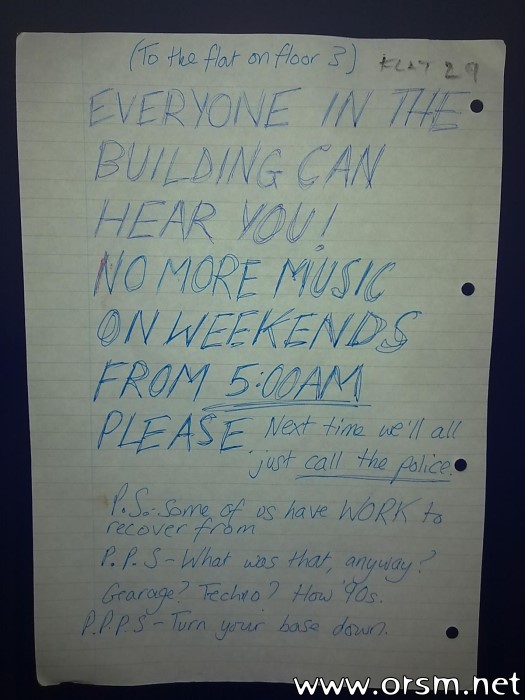 (To the flat on floor 3) FLAT 29
EVERYONE IN THE
BUILDING CAN
HEAR YOU!
NO MORE MUSIC
ON WEEKENDS
FROM 5:00AM
PLEASE. Next time we'll all
just call the police.
P.S. - Some of us have WORK to
recover from
P.P.S - What was that, anyway?
Gearage? Techno? How '90s.
P.P.P.S - Turn your base down.
www.orsm.net